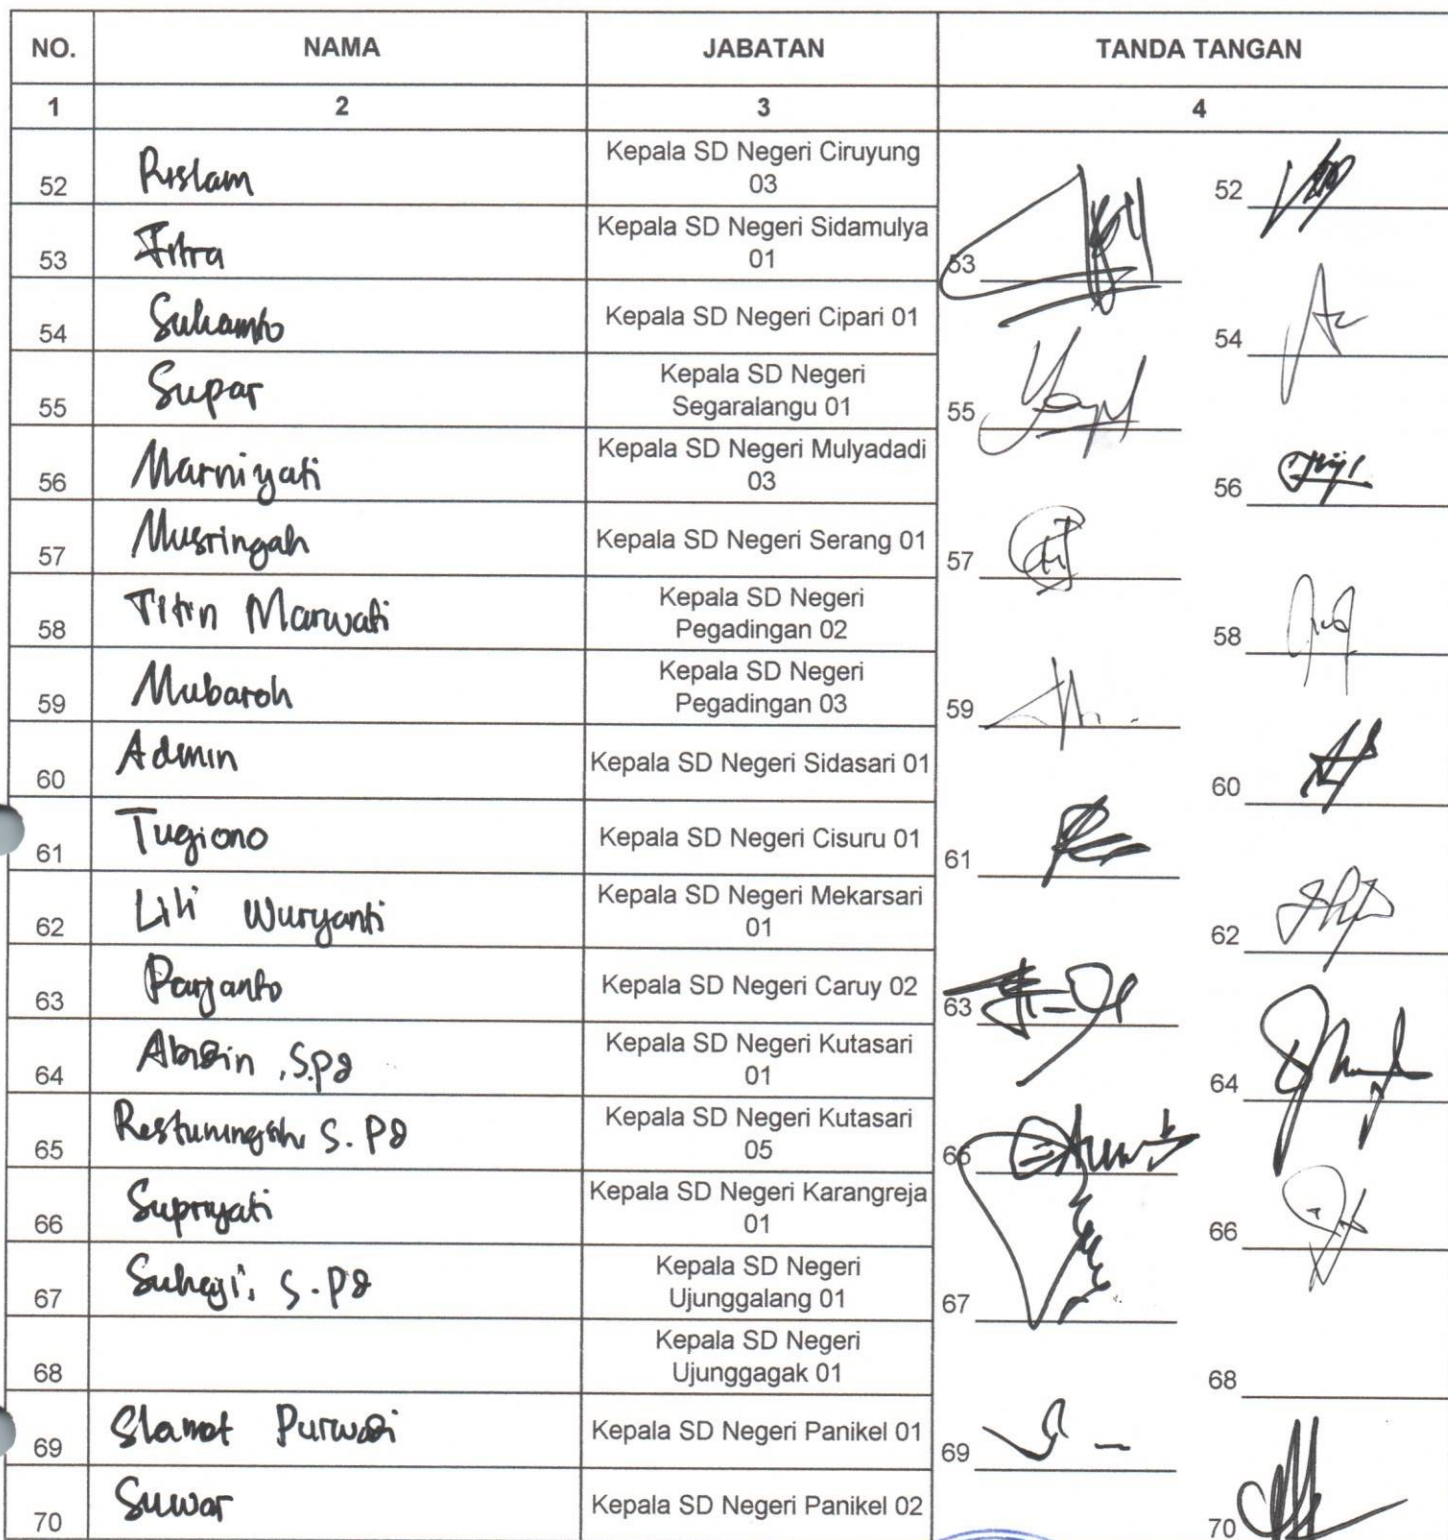 NO. NAMA JABATAN TANDA TANGAN
1 2 3 4
52 Rislam Kepala SD Negeri Ciruyung 03 52
53 Fitra Kepala SD Negeri Sidamulya 01 53
54 Sukamto Kepala SD Negeri Cipari 01 54
55 Supar Kepala SD Negeri Segaralangu 01 55
56 Marniyati Kepala SD Negeri Mulyadadi 03 56
57 Musringah Kepala SD Negeri Serang 01 57
58 Titin Marwati Kepala SD Negeri Pegadingan 02 58
59 Mubaroh Kepala SD Negeri Pegadingan 03 59
60 Admin Kepala SD Negeri Sidasari 01 60
61 Tugiono Kepala SD Negeri Cisuru 01 61
62 Lili Wuryanti Kepala SD Negeri Mekarsari 01 62
63 Parjanto Kepala SD Negeri Caruy 02 63
64 Abidin, S.Pd Kepala SD Negeri Kutasari 01 64
65 Restuningsih, S.Pd Kepala SD Negeri Kutasari 05 65
66 Supriyati Kepala SD Negeri Karangreja 01 66
67 S.Pd Kepala SD Negeri Ujunggalang 01 67
68 Kepala SD Negeri Ujunggagak 01 68
69 Slamet Purwadi Kepala SD Negeri Panikel 01 69
70 Suwar Kepala SD Negeri Panikel 02 70